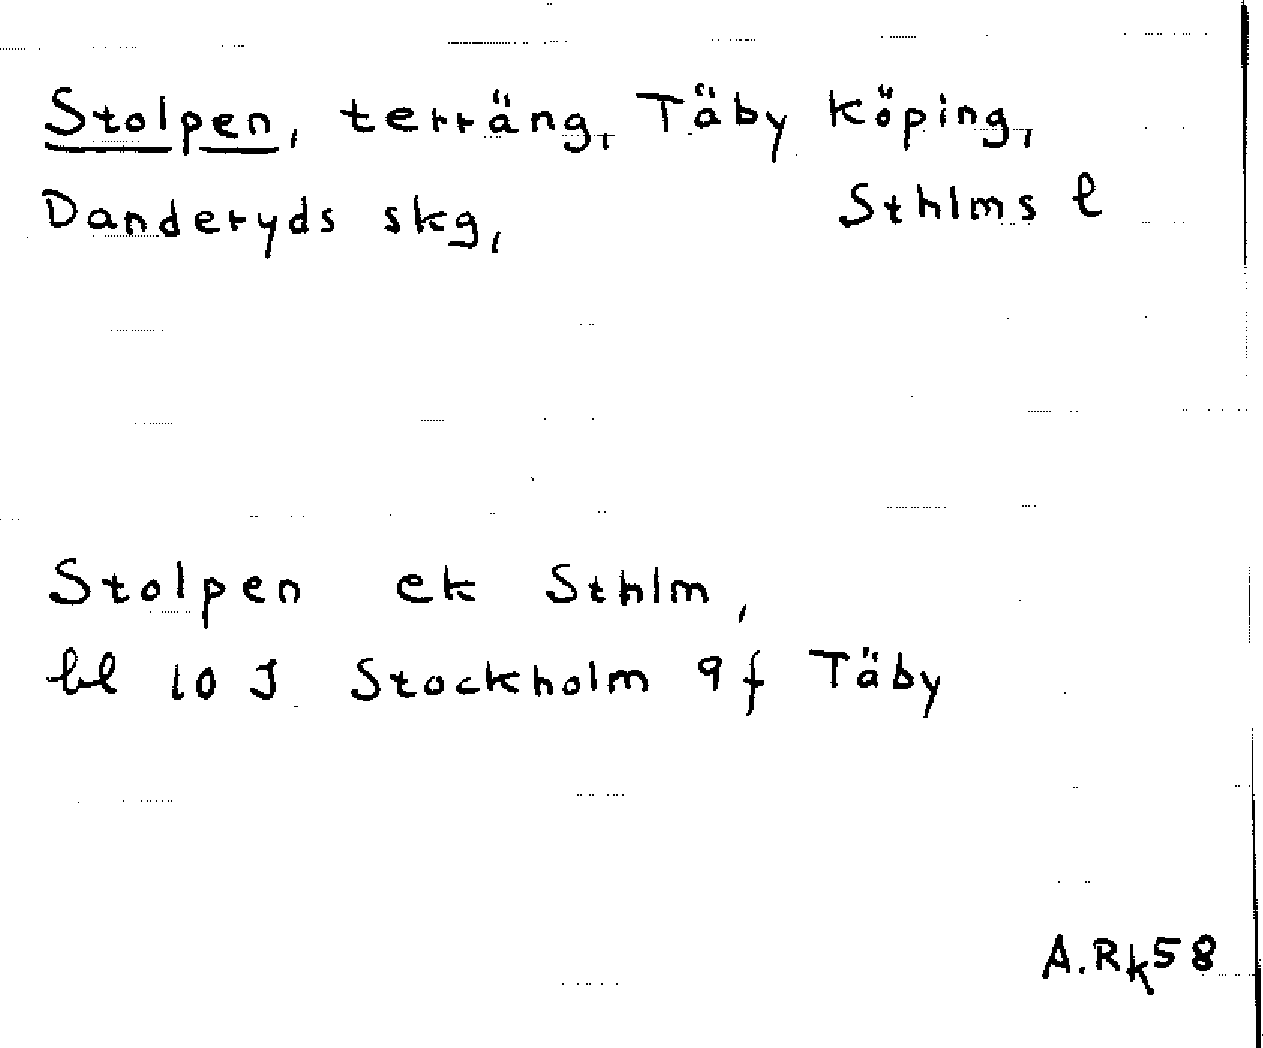 Stolpen, terräng, Täby köping,
Danderyds skg, Sthlms l
Stolpen ek Sthlm,
bl 10 J Stockholm 9 f Täby
A.Rk58